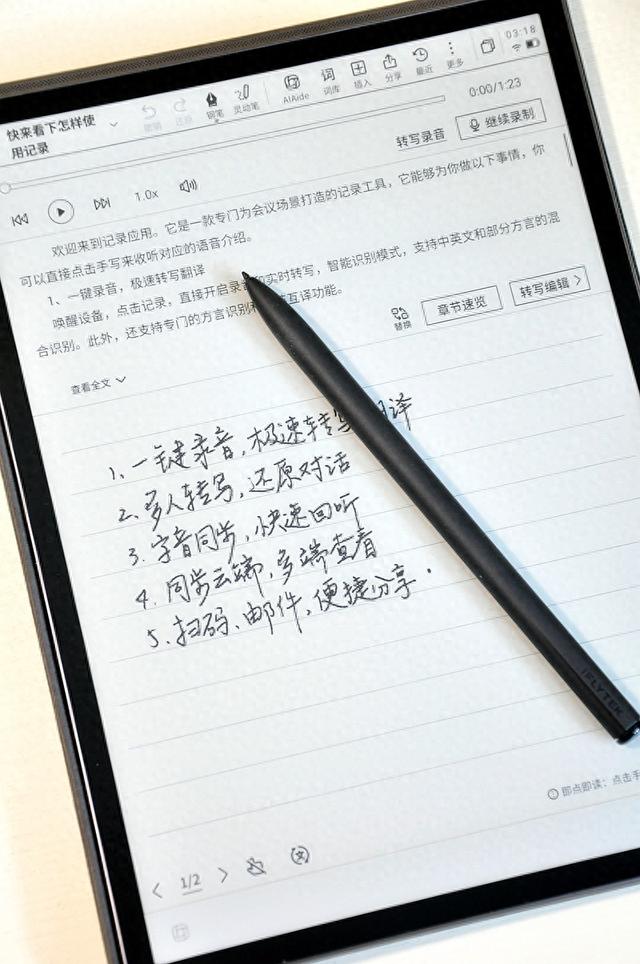 03:18
快来看下怎样使
用记录
撤销 还原 钢笔 灵动笔 AIAide 词库 插入 分享 最近 更多
0:00/1:23
1.0x
转写录音 继续录制
欢迎来到记录应用。它是一款专门为会议场景打造的记录工具，它能够为你做以下事情，你
可以直接点击手写来收听对应的语音介绍。
1、一键录音，极速转写翻译
唤醒设备，点击记录，直接开启录音 实时转写，智能识别模式，支持中英文和部分方言的混
合识别。此外，还支持专门的方言识别 互译功能。
替换 章节速览 转写编辑 >
查看全文
1、一键录音，极速转写 译
2、多人转写，还原对话
3、字音同步，快速回听
4、同步云端，多端查看
5、扫码、邮件，便捷分享.
iFLYTEK
即点即读：点击手
< 1/2 >